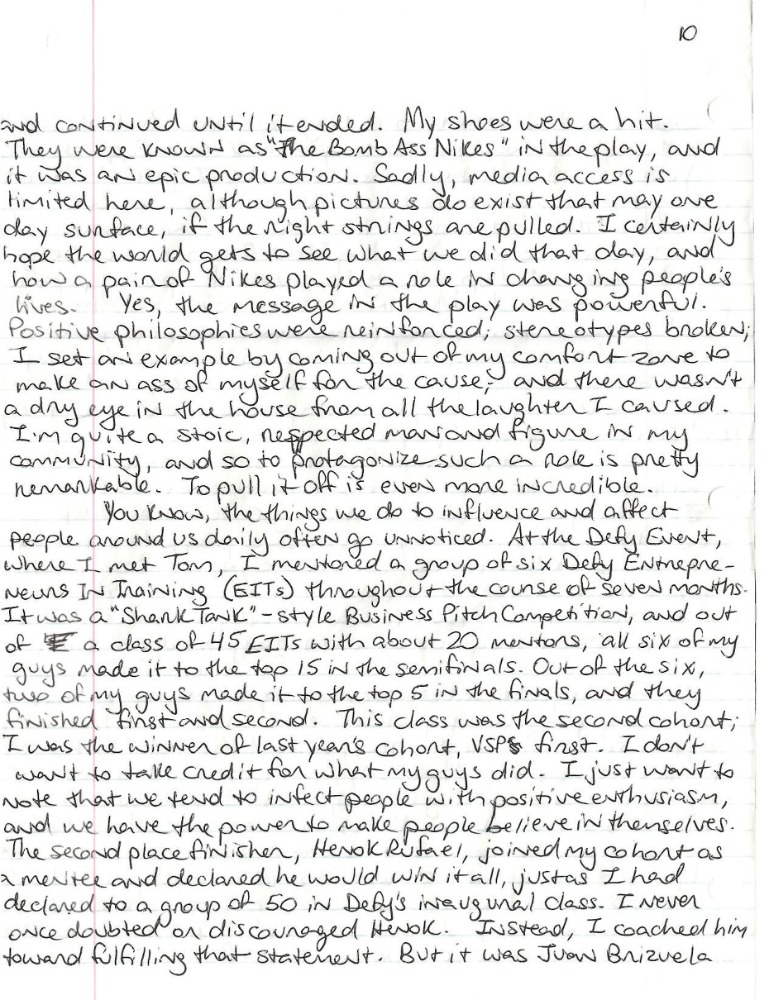 10
and continued until it ended. My shoes were a hit.
They were known as "The Bomb Ass Nikes" in the play, and
it was an epic production. Sadly, media access is
limited here, although pictures do exist that may one
day surface, if the right strings are pulled. I certainly
hope the world gets to see what we did that day, and
how a pair of Nikes played a role in changing people's
lives. Yes, the message in the play was powerful.
Positive philosophies were reinforced; stereotypes broken;
I set an example by coming out of my comfort zone to
make an ass of myself for the cause; and there wasn't
a dry eye in the house from all the laughter I caused.
I'm quite a stoic, respected man and figure in my
community, and so to protagonize such a role is pretty
remarkable. To pull it off is even more incredible.
You know, the things we do to influence and affect
people around us daily often go unnoticed. At the Defy Event,
where I met Tom, I mentored a group of six Defy Entrepre-
neurs In Training (EITs) throughout the course of seven months.
It was a "Shark Tank"-style Business Pitch Competition, and out
of a class of 45 EITs with about 20 mentors, all six of my
guys made it to the top 15 in the semifinals. Out of the six,
two of my guys made it to the top 5 in the finals, and they
finished first and second. This class was the second cohort;
I was the winner of last year's cohort, VSP's first. I don't
want to take credit for what my guys did. I just want to
note that we tend to infect people with positive enthusiasm,
and we have the power to make people believe in themselves.
The second place finisher, Henok Rufael, joined my cohort as
a mentee and declared he would win it all, just as I had
declared to a group of 50 in Defy's inaugural class. I never
once doubted or discouraged Henok. Instead, I coached him
toward fulfilling that statement. But it was Juan Brizuela